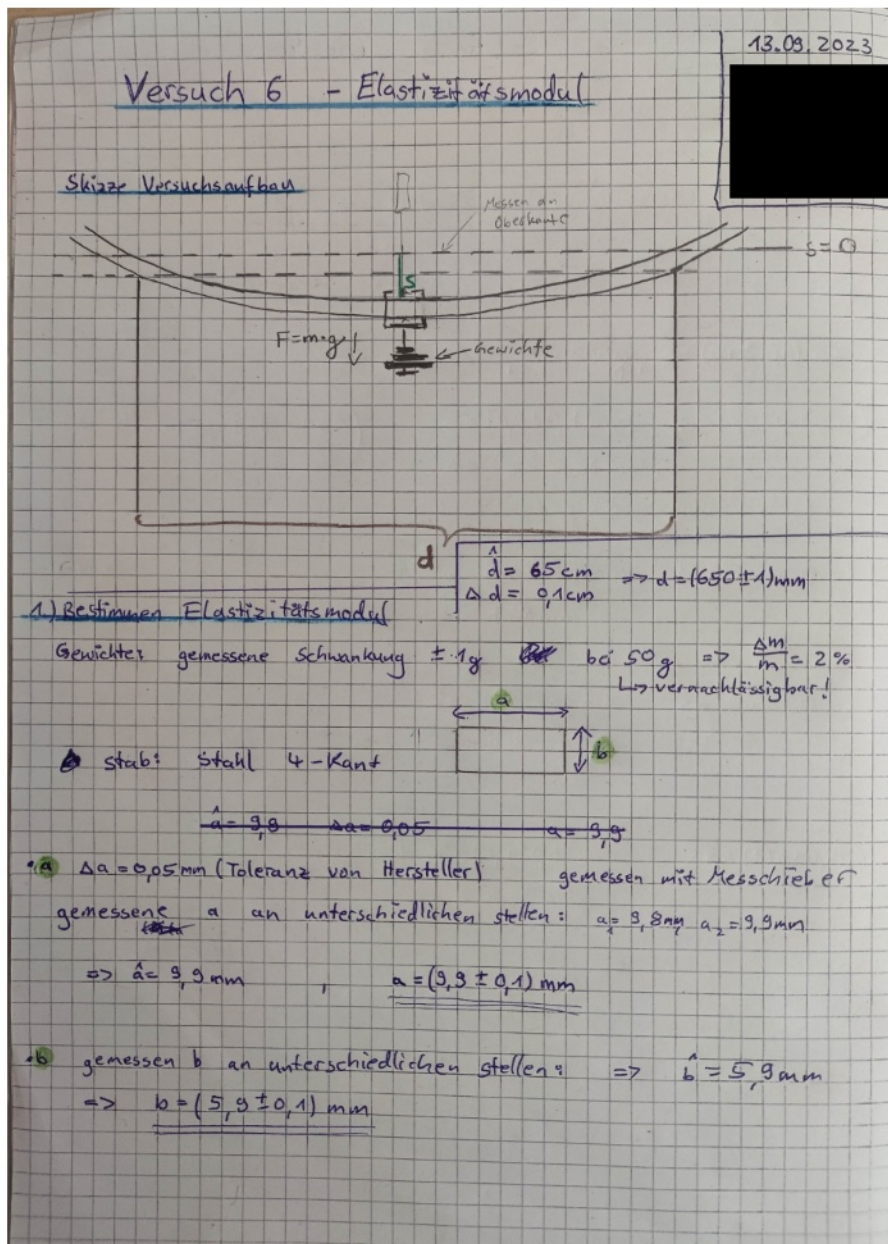 13.09.2023
Versuch 6 - Elastizitätsmodul
Skizze Versuchsaufbau
Messen an
Oberkante
s = 0
s
F=m·g
Gewichte
d
d̂ = 65cm => d=(650±1)mm
Δd = 0,1cm
1.) Bestimmen Elastizitätsmodul
Gewichte: gemessene Schwankung ± 1g bei 50g => Δm/m = 2%
↳ vernachlässigbar!
a
b
Stab: Stahl 4-Kant
â = 9,9 Δa = 0,05 a = 9,9
·a Δa = 0,05mm (Toleranz von Hersteller) gemessen mit Messchieber
gemessene a an unterschiedlichen stellen: a₁= 9,8mm, a₂=9,9mm
=> â= 9,9mm , a=(9,9 ± 0,1) mm
·b gemessen b an unterschiedlichen stellen: => b̂ = 5,9mm
=> b=(5,9±0,1) mm